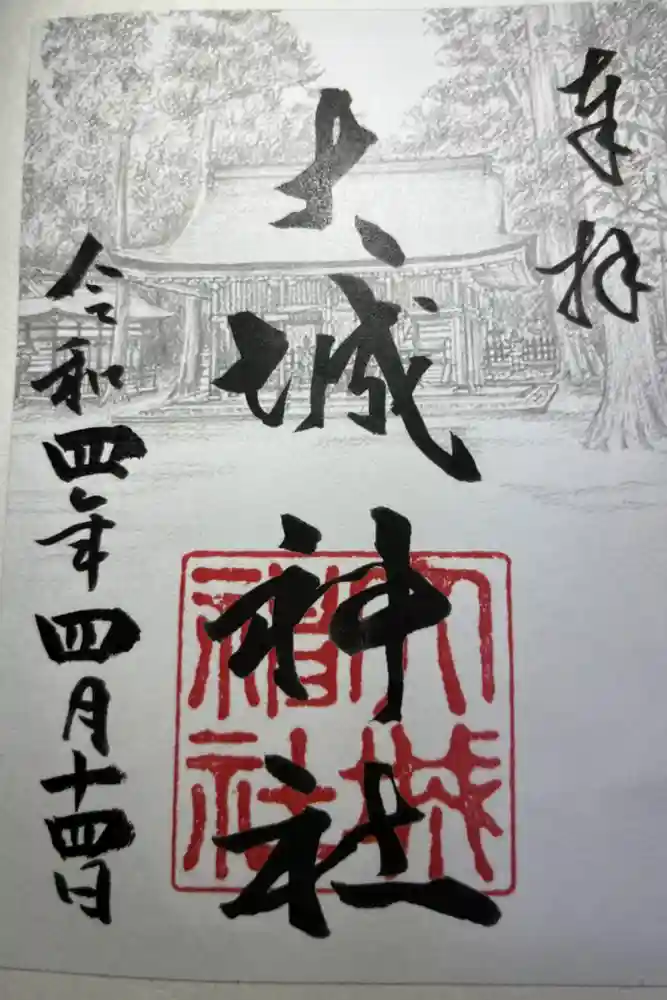 奉拝
大城神社
大城神社
令和四年四月十四日